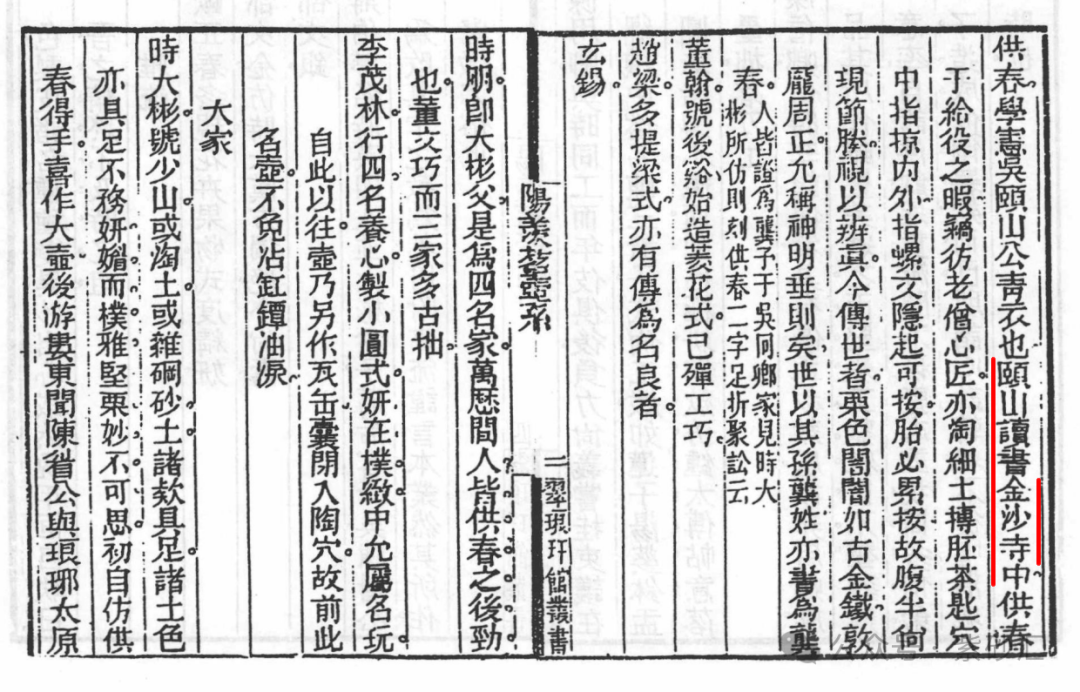 供春學憲吳頤山公青衣也頤山讀書金沙寺中供春
于給役之暇竊彷老僧心匠亦淘細土摶胚茶匙穴
中指掠內外指螺文隱起可按胎必累按故腹半尙
現節腠視以辨眞今傳世者栗色闇闇如古金鐵敦
龐周正允稱神明垂則矣世以其孫龔姓亦書為龔
春人皆證為龔予于吳冏卿家見時大
彬所仿則刻供春二字足折聚訟云
董翰號後谿始造菱花式已殫工巧
趙梁多提梁式亦有傳為名良者
玄錫
陽羨茗壺系
二
翠琅玕館叢書
時朋卽大彬父是爲四名家萬厯間人皆供春之後勁
也董文巧而三家多古拙
李茂林行四名養心製小圓式妍在樸緻中允屬名玩
自此以往壺乃另作瓦缶囊閉入陶穴故前此
名壺不免沾缸罈油淚
大家
時大彬號少山或淘土或雜碙砂土諸欵具足諸土色
亦具足不務妍媚而樸雅堅栗妙不可思初自仿供
春得手喜作大壺後游婁東聞陳眉公與琅琊太原